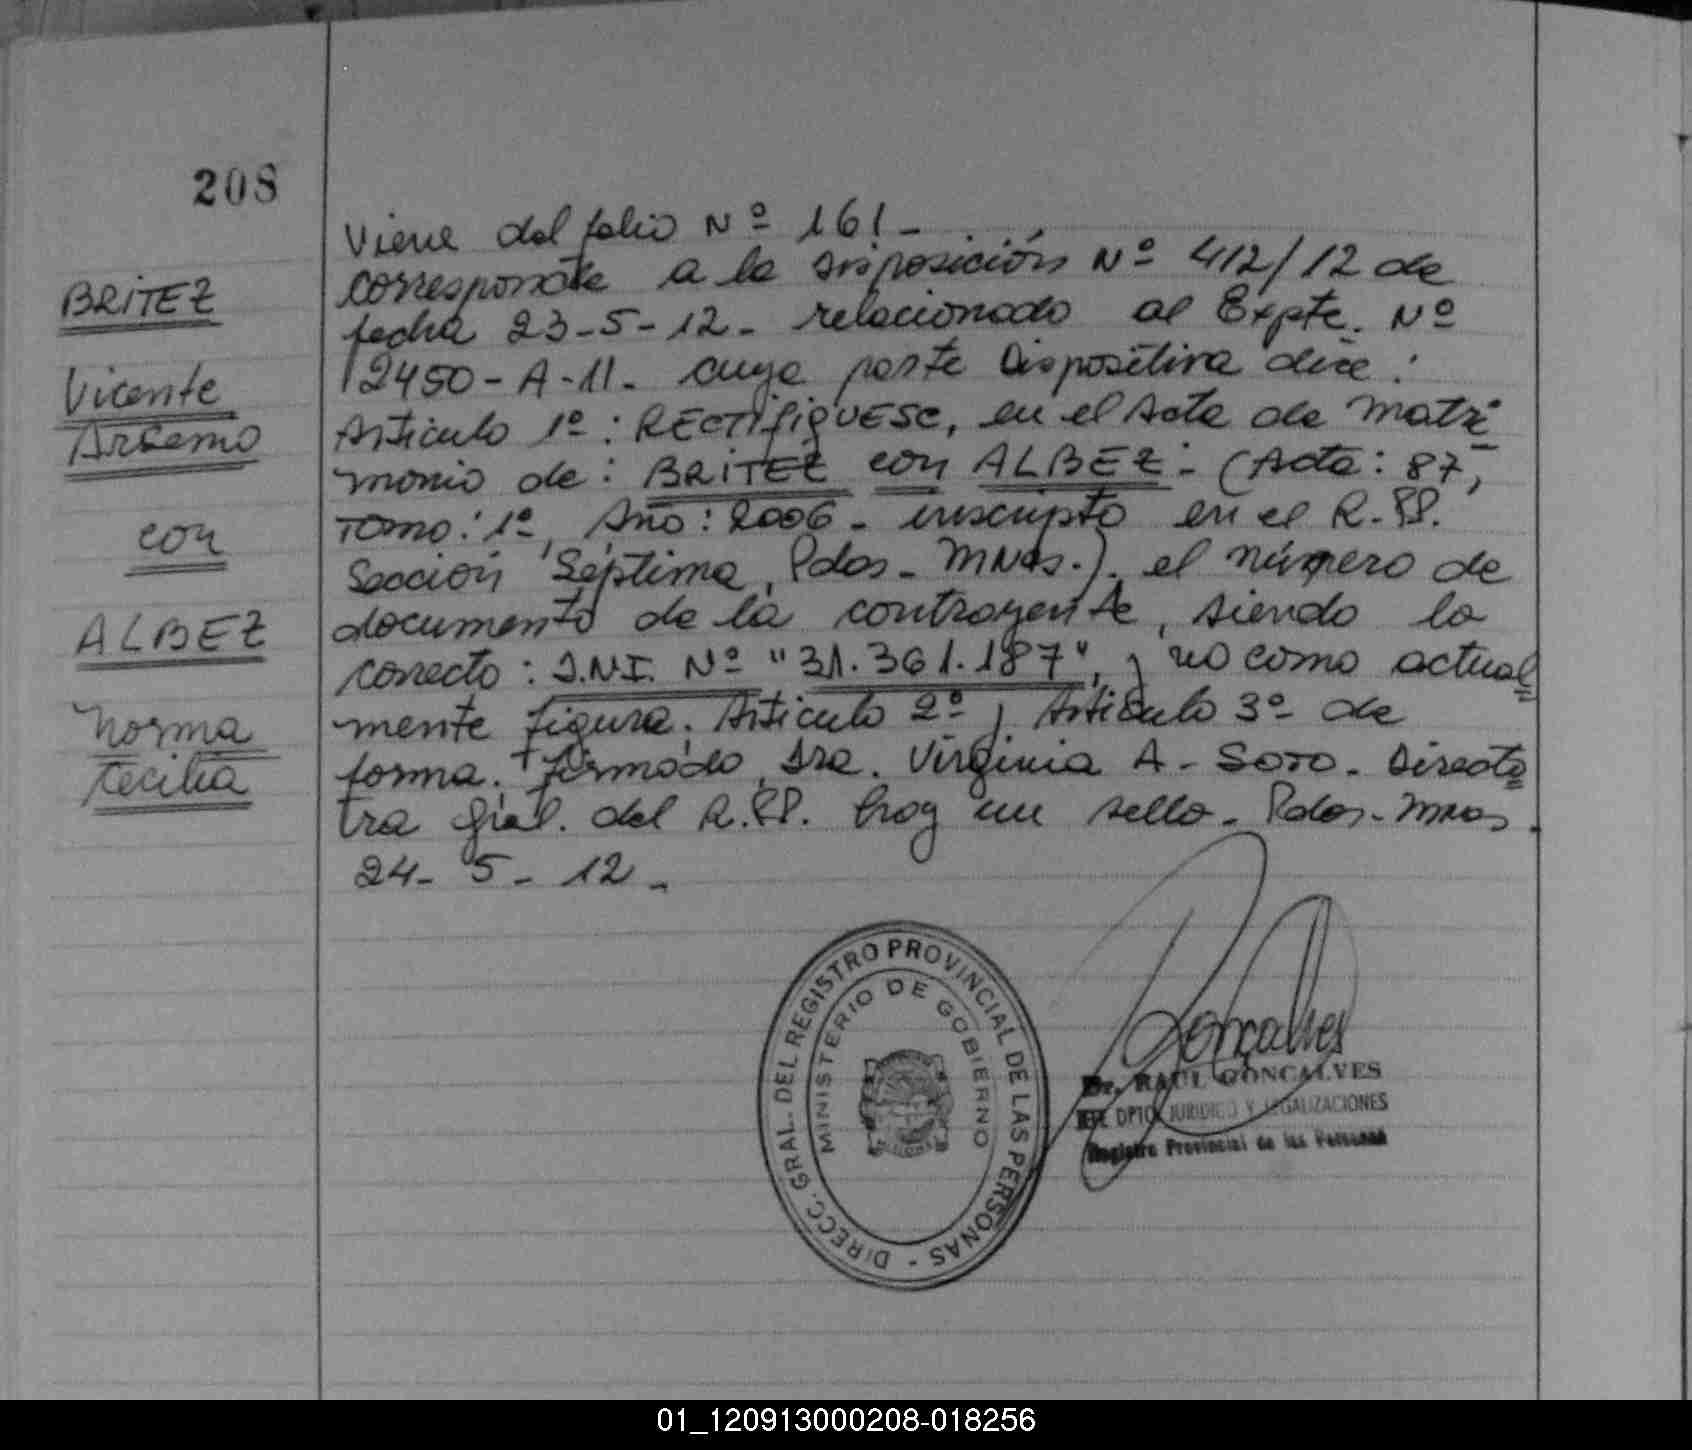 208
BRITEZ
Vicente
Arsenio
con
ALBEZ
Norma
Cecilia
Viene del folio Nº 161-
corresponde a la disposición Nº 412/12 de
fecha 23-5-12- relacionado al Expte. Nº
12450-A-11- cuya parte Dispositiva dice:
Artículo 1º: RECTIFIQUESE, en el Acta de Matri
monio de: BRITEZ con ALBEZ- (Acta: 87,
Tomo: 1º, Año: 2006- inscripto en el R.PP.
Sección Séptima, Pdas- Mnes.). el número de
documento de la contrayente, siendo lo
correcto: D.N.I. Nº "31.361.187", y no como actual
mente figura. Artículo 2º y Artículo 3º de
forma. firmado, Dra. Virginia A- Soto- Directo
ra Gral. del R.PP. hay un sello- Pdas-Mnes.
24-5-12-
DIRECC. GRAL. DEL REGISTRO PROVINCIAL DE LAS PERSONAS -
MINISTERIO DE GOBIERNO
Gonçalves
Dr. RAUL GONCALVES
DPTO JURIDICO Y LEGALIZACIONES
Registro Provincial de las Personas
01_120913000208-018256